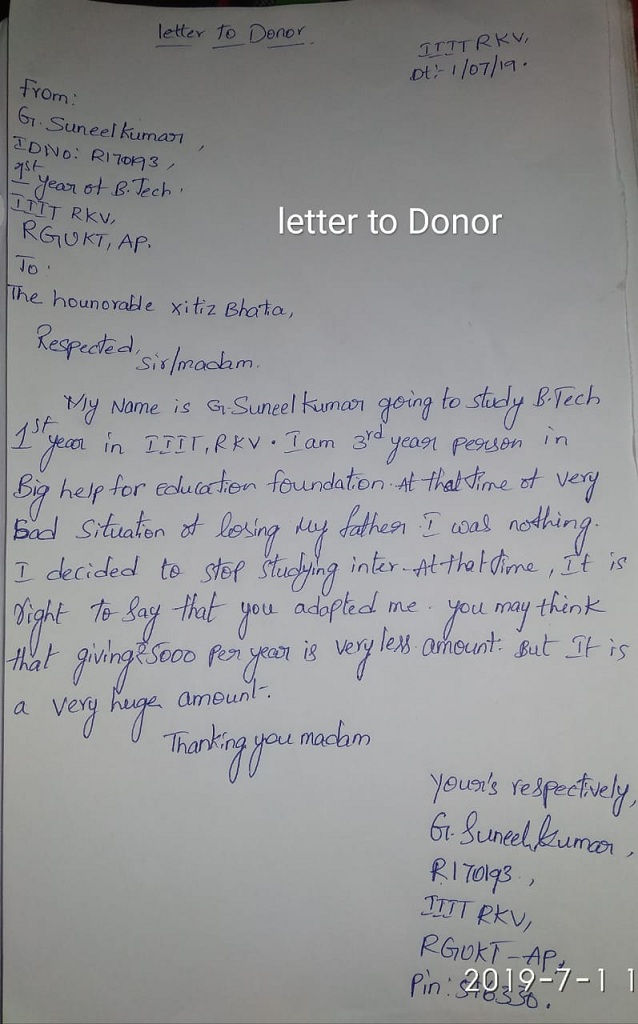 letter to Donor
IIIT RKV,
Dt:- 1/07/19.
From:
G. Suneel kumar,
IDNo: R170193,
1st year of B.Tech.
IIIT RKV,
RGUKT, AP.
letter to Donor
To.
The hounorable xitiz Bhatia,
Respected,
sir/madam.
My Name is G.Suneel kumar going to study B.Tech
1st year in IIIT, RKV. I am 3rd year person in
Big help for education foundation. At that time of very
Bad Situation of losing my father I was nothing.
I decided to stop studying inter-At that time, It is
right to say that you adopted me. you may think
that giving ₹5000 per year is very less amount. But It is
a very huge amount.
Thanking you madam
Your's respectively,
G. Suneel kumar,
R170193,
IIIT RKV,
RGUKT-AP,
Pin:
2019-7-1 1